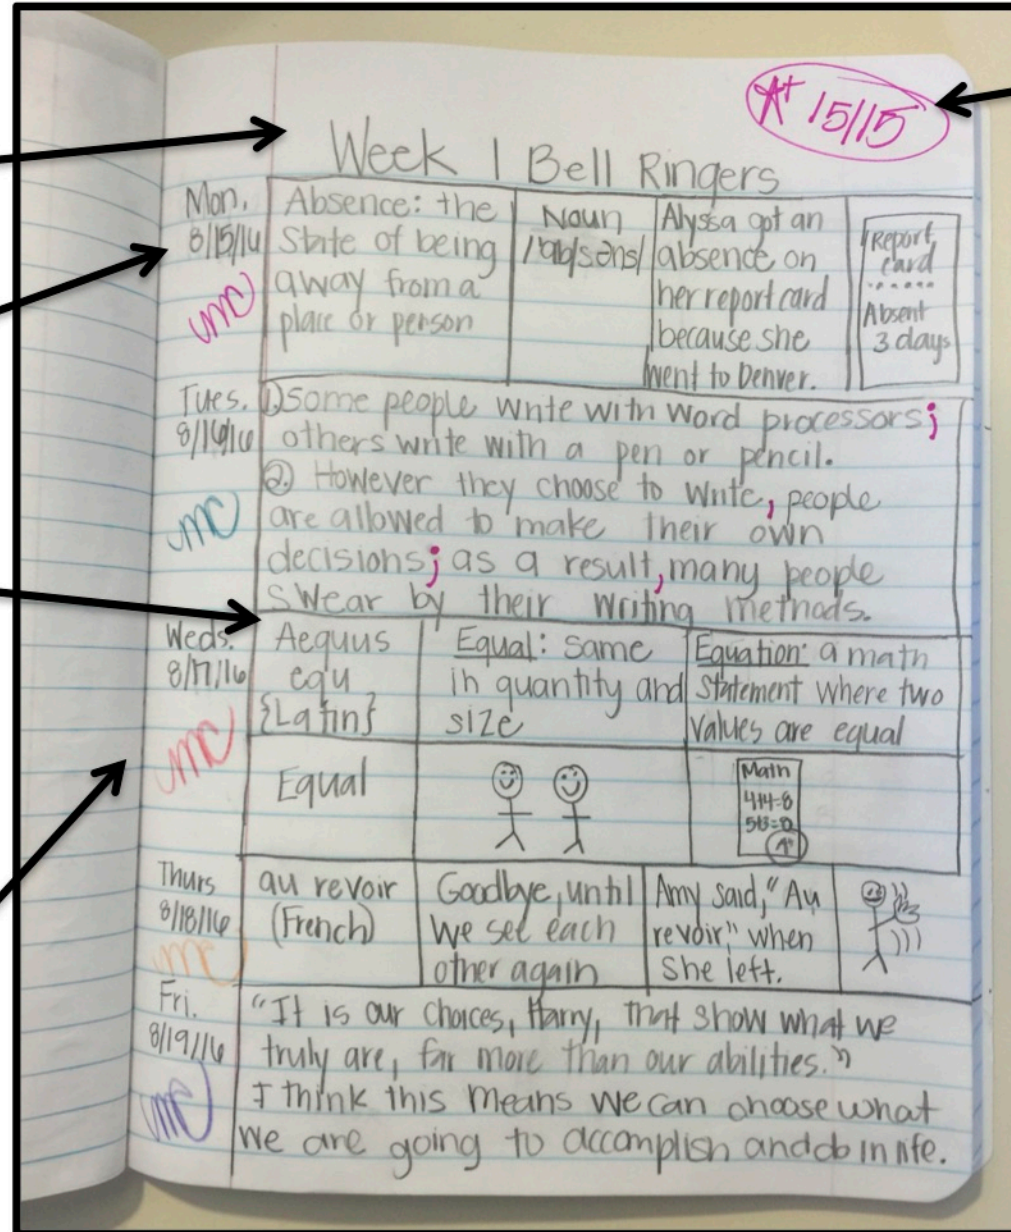 A+ 15/15
Week 1 Bell Ringers
Mon.
8/15/16
mc
Absence: the
State of being
away from a
place or person
Noun
/'ab/səns/
Alyssa got an
absence on
her report card
because she
went to Denver.
Report
card
Absent
3 days
Tues.
8/16/16
mc
① Some people write with word processors;
others write with a pen or pencil.
②. However they choose to write, people
are allowed to make their own
decisions; as a result, many people
swear by their writing methods.
Weds.
8/17/16
mc
Aequus
equ
{Latin}
Equal: same
in quantity and
size
Equation: a math
statement where two
values are equal
Equal
Math
4+4=8
A+
Thurs
8/18/16
mc
au revoir
(French)
Goodbye, until
we see each
other again
Amy said, "Au
revoir," when
she left.
Fri.
8/19/16
mc
"It is our choices, Harry, that show what we
truly are, far more than our abilities."
I think this means we can choose what
we are going to accomplish and do in life.